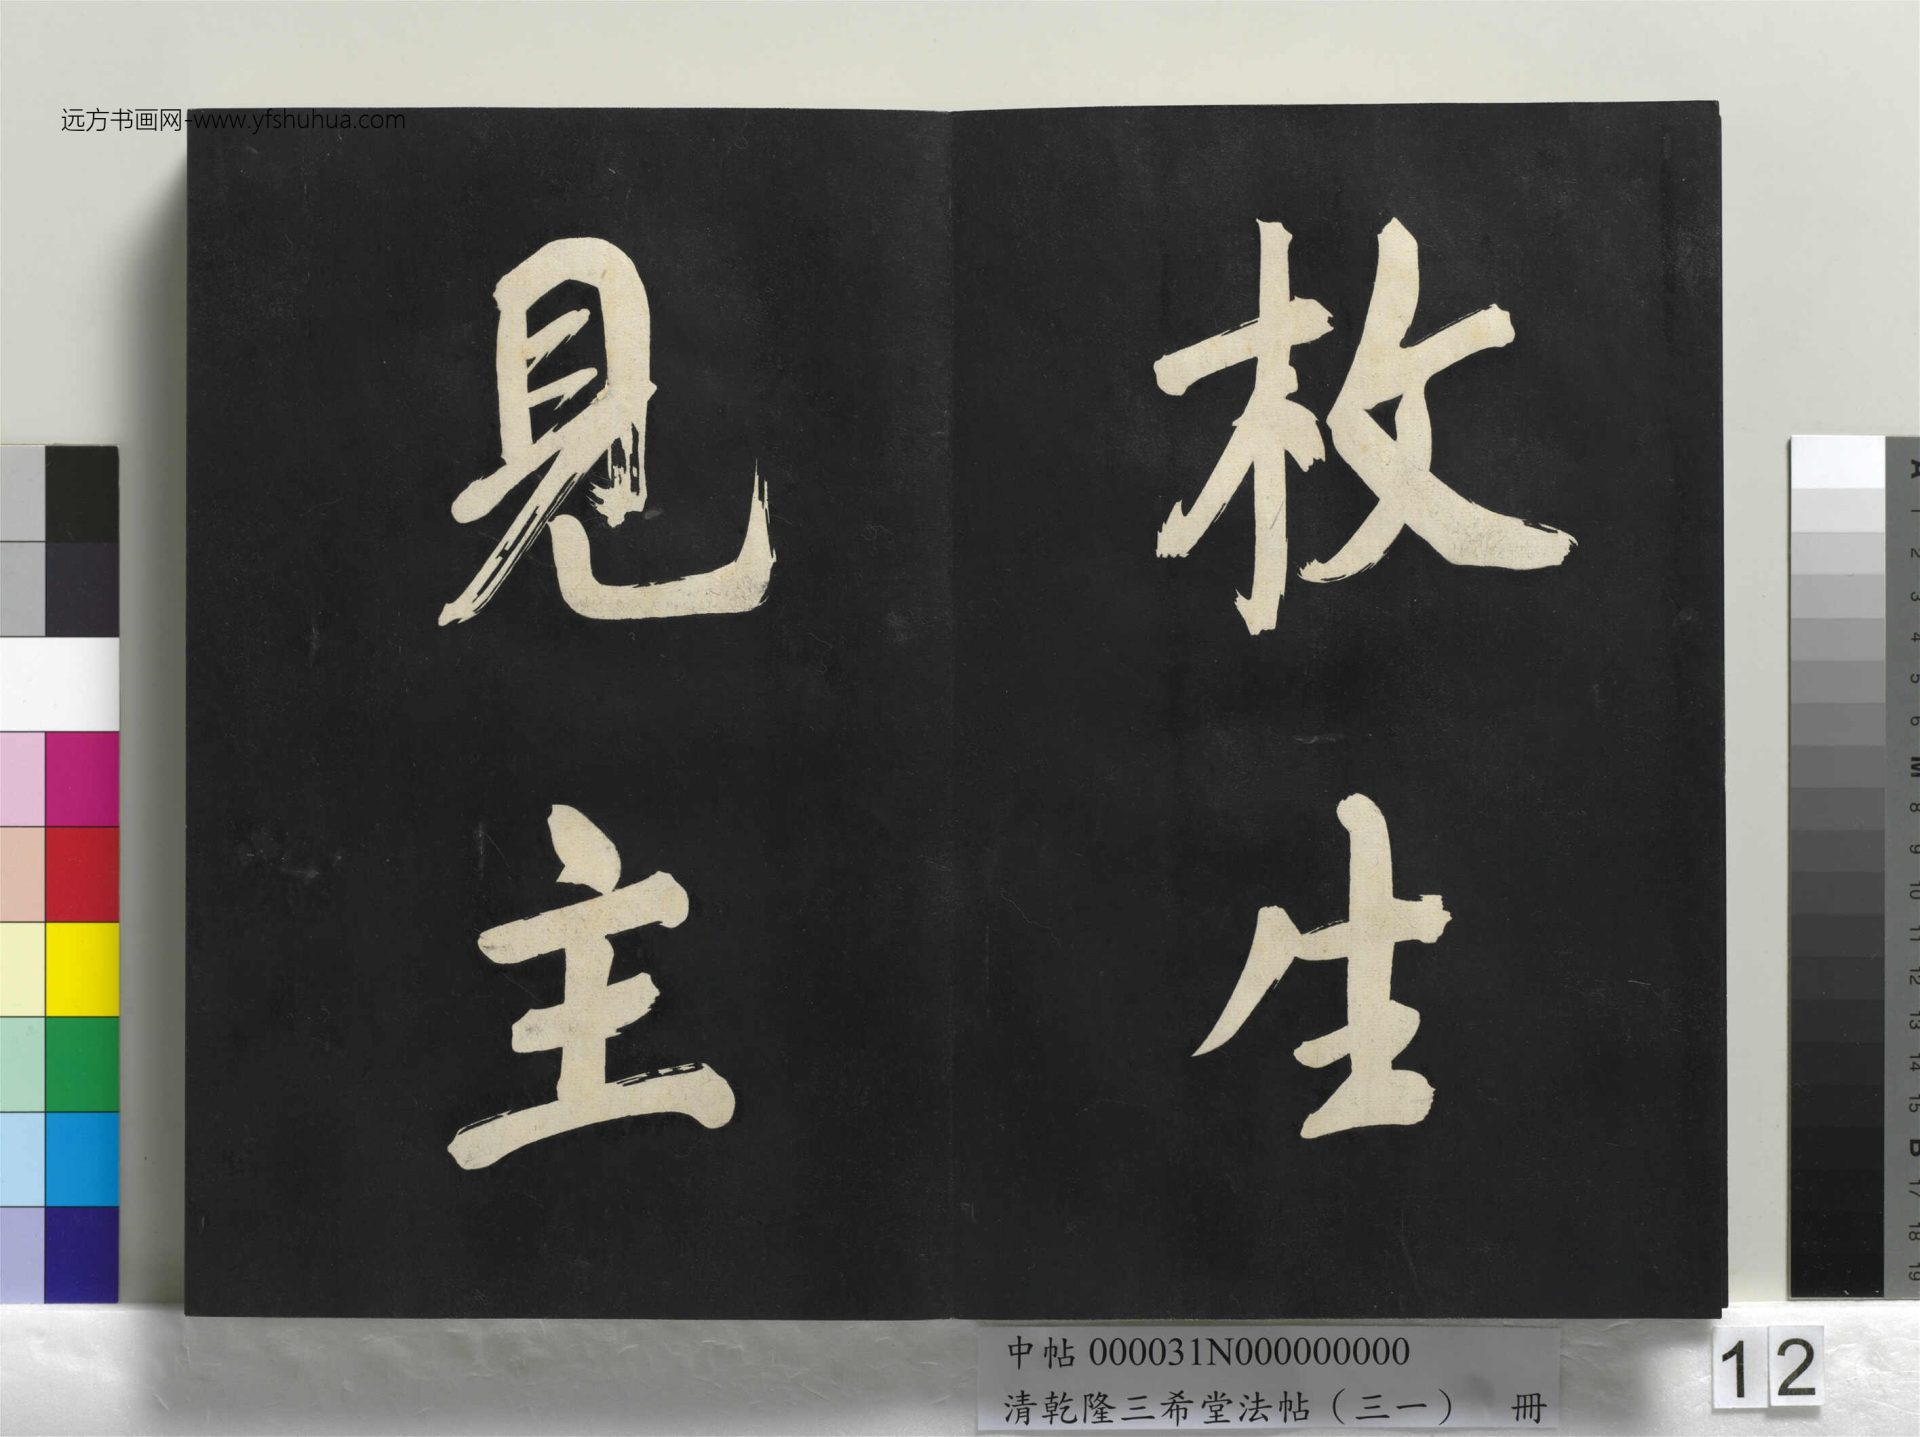 远方书画网-www.yfshuhua.com
枚生
見主
中帖 000031N000000000
清乾隆三希堂法帖（三一） 冊
12
A
1
2
3
4
5
6
M
8
9
10
11
12
13
14
15
B
17
18
19